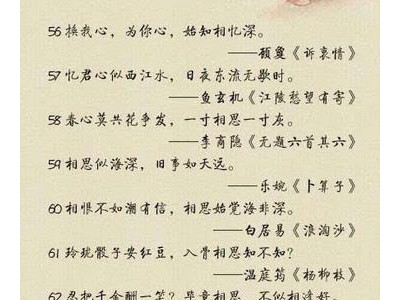 56 换我心，为你心，始知相忆深。
——顾夐《诉衷情》
57 忆君心似西江水，日夜东流无歇时。
——鱼玄机《江陵愁望有寄》
58 春心莫共花争发，一寸相思一寸灰。
——李商隐《无题六首其六》
59 相思似海深，旧事如天远。
——乐婉《卜算子》
60 相恨不如潮有信，相思始觉海非深。
——白居易《浪淘沙》
61 玲珑骰子安红豆，入骨相思知不知？
——温庭筠《杨柳枝》
62 忍把千金酬一笑？毕竟相思，不似相逢好。